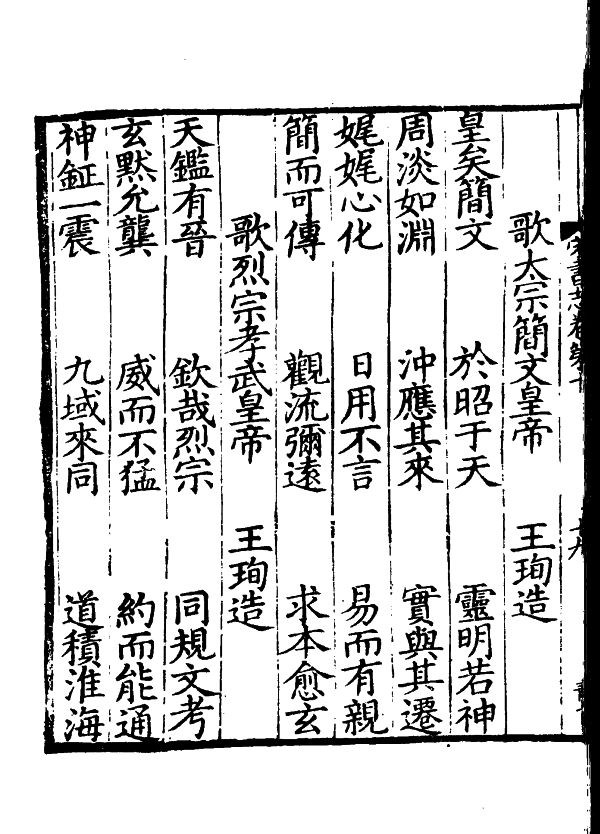 歌太宗簡文皇帝　王珣造
皇矣簡文　於昭于天　靈明若神
周淡如淵　沖應其來　實與其遷
娓娓心化　日用不言　易而有親
簡而可傳　觀流彌遠　求本愈玄
歌烈宗孝武皇帝　王珣造
天鑑有晉　欽哉烈宗　同規文考
玄默允龔　威而不猛　約而能通
神鉦一震　九域來同　道積淮海